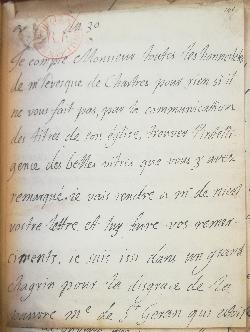 ce Ju 30
Je compte Monsieur toutes les honnestetés
de mr levesque de Chartres pour rien si il
ne vous fait pas par la communication
des titres de son eglise, trouver l'intelli
gence des belles vitres que vous y avez
remarqué. ie vais rendre a mr de
vostre lettre et luy faire vos remer
ciments, ie suis icy dans un grand
chagrin pour la disgrace de
pauvre me de St Geran qui estoit